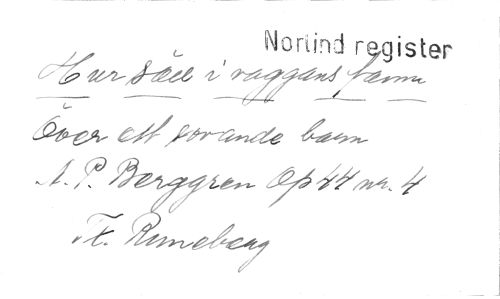 Norlind register
Hur säll i vaggans famn
Över ett sovande barn
A. P. Berggren Op 44 nr. 4
F. Runeberg